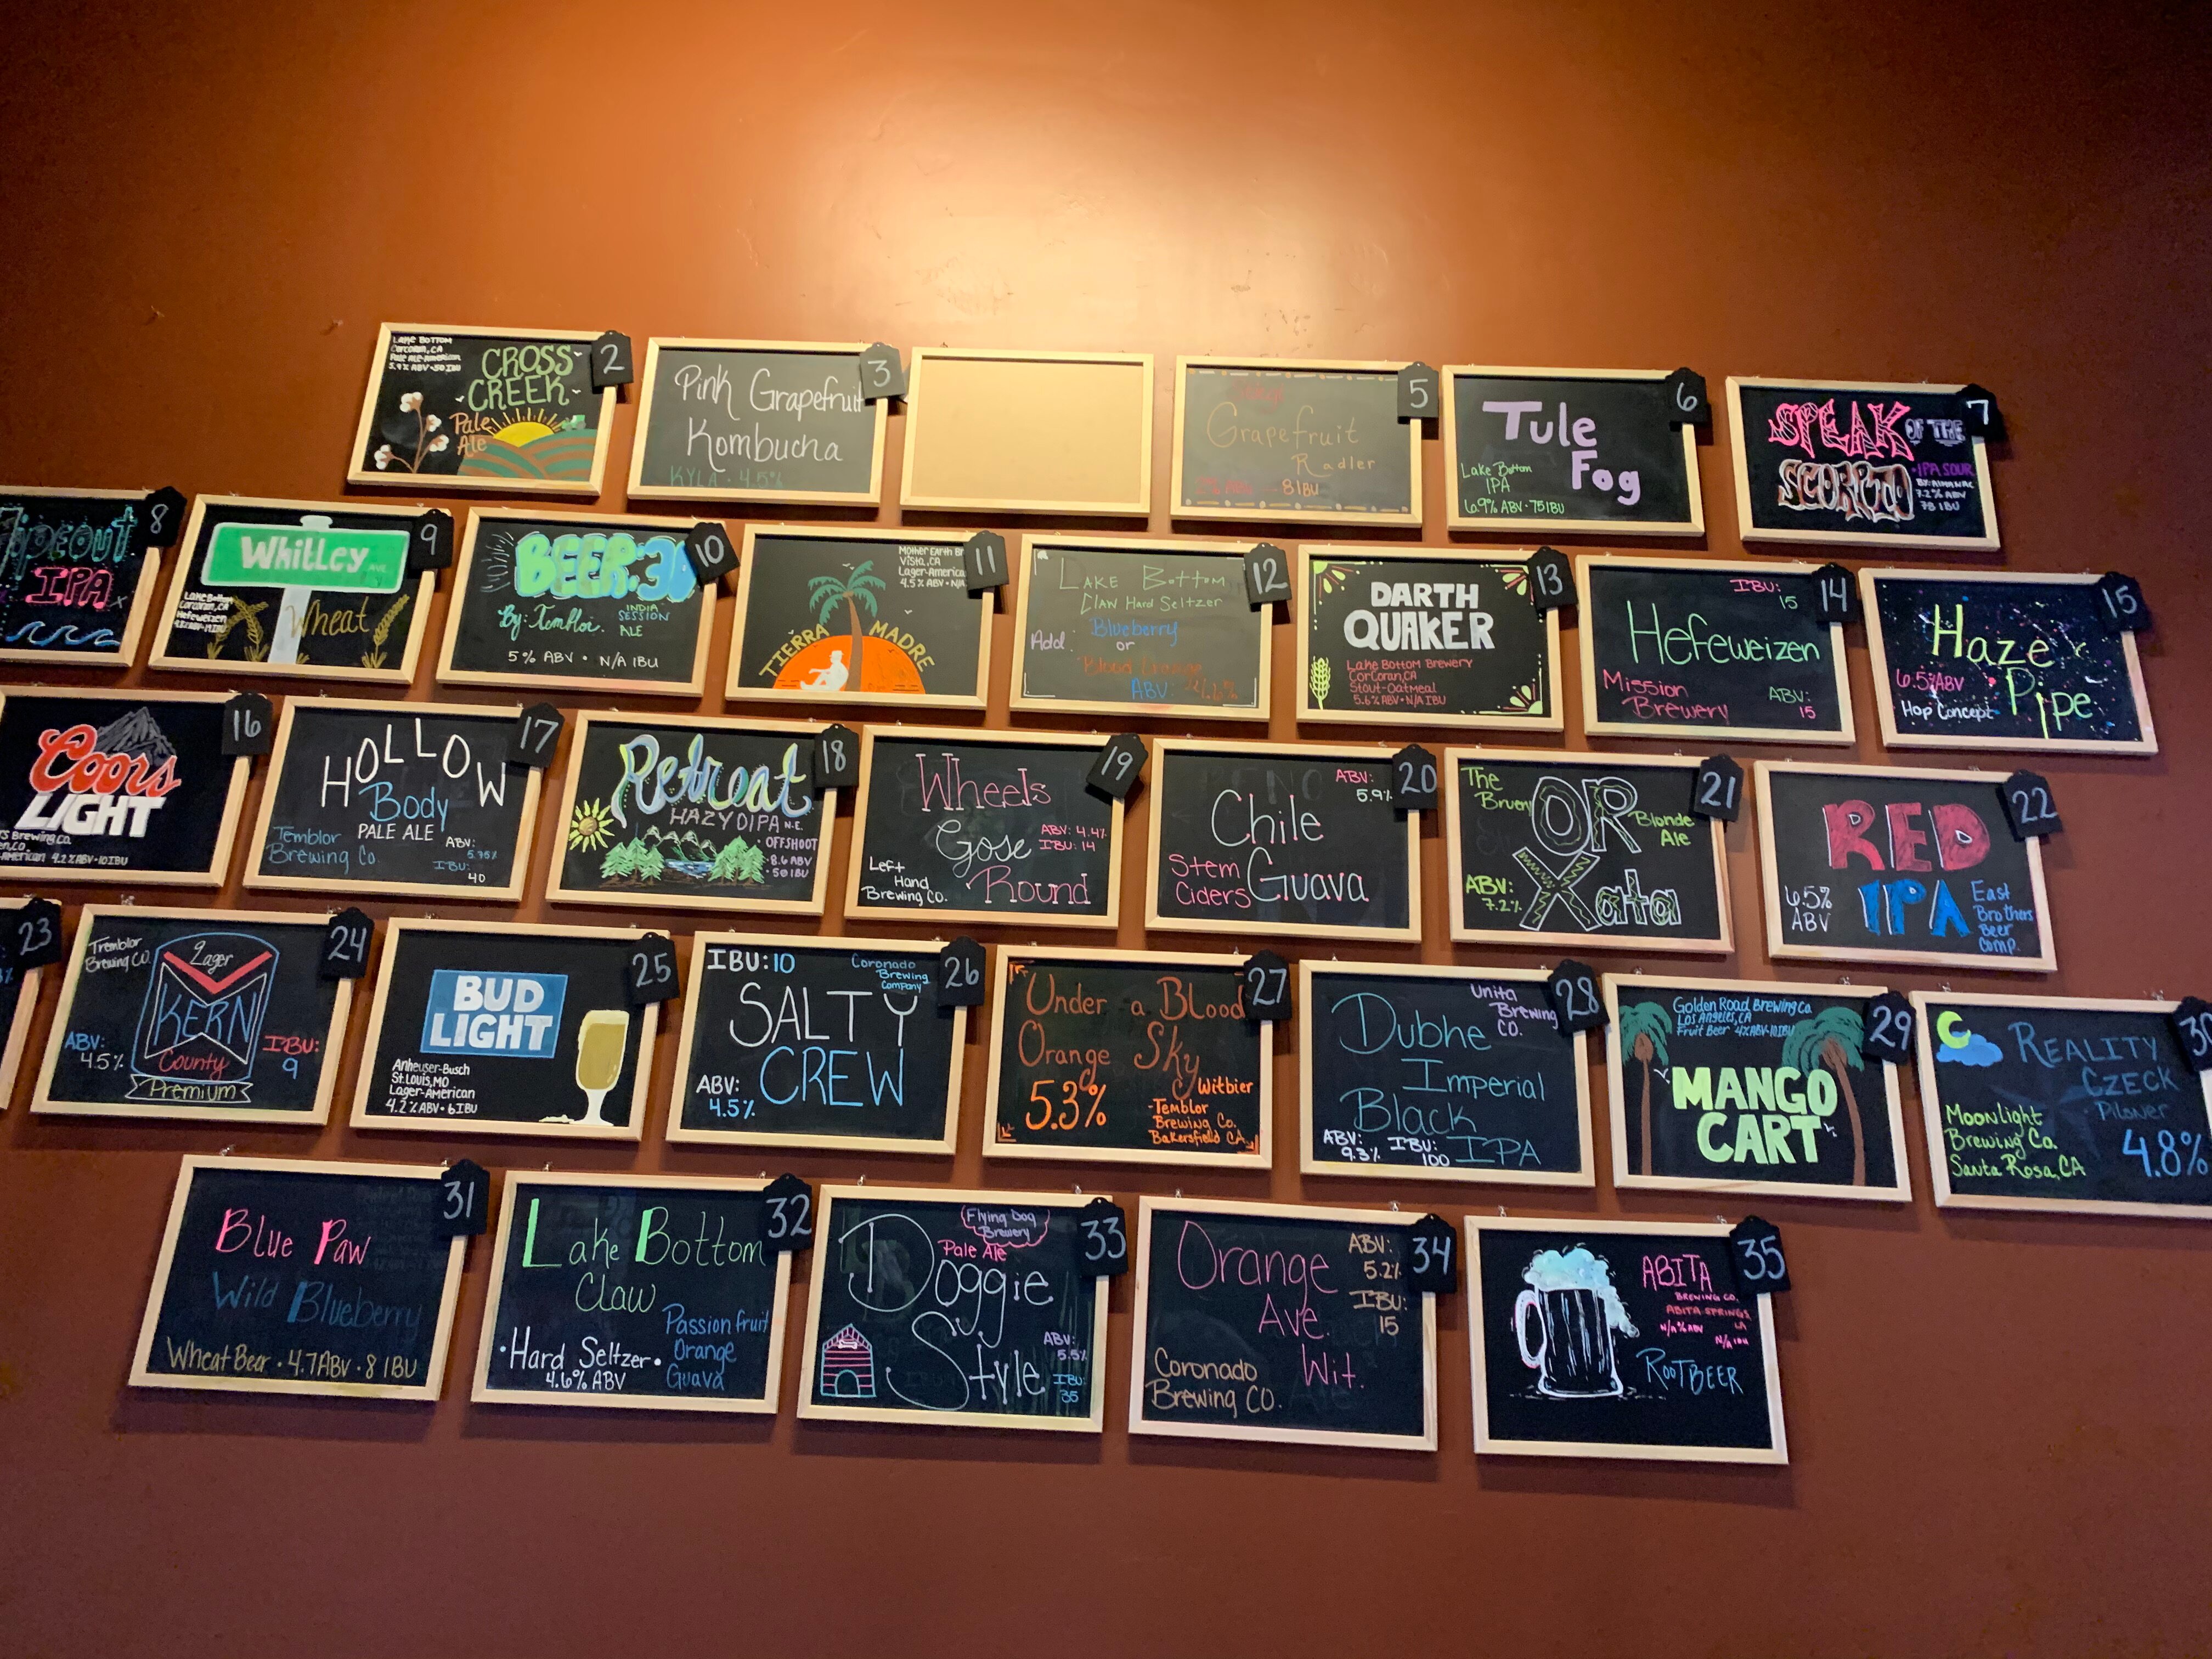 2
LAKE BOTTOM
Corcoran, CA
Pale Ale-American
5.9% ABV · 50 IBU
CROSS
CREEK
Pale
Ale
3
Pink Grapefruit
Kombucha
KYLA · 4.5%
5
Grapefruit
Radler
8 IBU
6
Tule
Fog
Lake Bottom
IPA
6.9% ABV · 75 IBU
7
SPEAK OF THE
SCORPIO
· IPA SOUR
BY: ALMANAC
7.2% ABV
78 IBU
8
IPA
9
Whitley AVE.
Lake Bottom
Corcoran, CA
Hefeweizen
Wheat
10
BEER:30
By: Temblor
INDIA
SESSION
ALE
5% ABV · N/A IBU
11
Mother Earth Br
Vista, CA
Lager-America
4.5% ABV · N/A
TIERRA MADRE
12
LAKE BOTTOM
CLAW Hard Seltzer
Add: Blueberry
or
Blood Orange
ABV: 4.6%
13
DARTH
QUAKER
Lake Bottom Brewery
CorCoran, CA
Stout-Oatmeal
5.6% ABV · N/A IBU
14
IBU:
15
Hefeweizen
Mission
Brewery
ABV:
15
15
Haze
Pipe
6.5% ABV
Hop Concept
16
Coors
LIGHT
S Brewing Co.
en, Co.
American 4.2% ABV · 10 IBU
17
HOLLOW
Body
PALE ALE
Temblor
Brewing Co.
ABV:
5.75%
IBU:
40
18
Retreat
HAZY DIPA N.E.
· OFFSHOOT
· 8.6 ABV
· 50 IBU
19
Wheels
Gose
Round
ABV: 4.4%
IBU: 14
Left
Hand
Brewing CO.
20
ABV:
5.9%
Chile
Guava
Stem
Ciders
21
The
Bruery
OR
Xata
Blonde
Ale
ABV:
7.2%
22
RED
IPA
6.5%
ABV
East
Brothers
Beer
Comp.
23
24
Tremblor
Brewing CO.
Lager
KERN
County
Premium
ABV:
4.5%
IBU:
9
25
BUD
LIGHT
Anheuser-Busch
St. Louis, MO
Lager-American
4.2% ABV · 6 IBU
26
IBU: 10
Coronado
Brewing
Company
SALTY
CREW
ABV:
4.5%
27
Under a Blood
Orange Sky
5.3%
Witbier
-Temblor
Brewing Co.
Bakersfield CA
28
Unita
Brewing
CO.
Dubhe
Imperial
Black
IPA
ABV:
9.3%
IBU:
100
29
Golden Road Brewing Co.
Los Angeles, CA
Fruit Beer 4% ABV · 10 IBU
MANGO
CART
30
REALITY
CZECK
Pilsner
4.8%
Moonlight
Brewing Co.
Santa Rosa, CA
31
Blue Paw
Wild Blueberry
Wheat Beer · 4.7 ABV · 8 IBU
32
Lake Bottom
Claw
· Hard Seltzer ·
4.6% ABV
Passion fruit
Orange
Guava
33
Flying Dog
Brewery
Pale Ale
Doggie
Style
ABV:
5.5%
IBU:
35
34
Orange
Ave.
Wit.
ABV:
5.2%
IBU:
15
Coronado
Brewing CO.
35
ABITA
BREWING CO.
ABITA SPRINGS
LA
N/A % ABV
N/A IBU
ROOTBEER